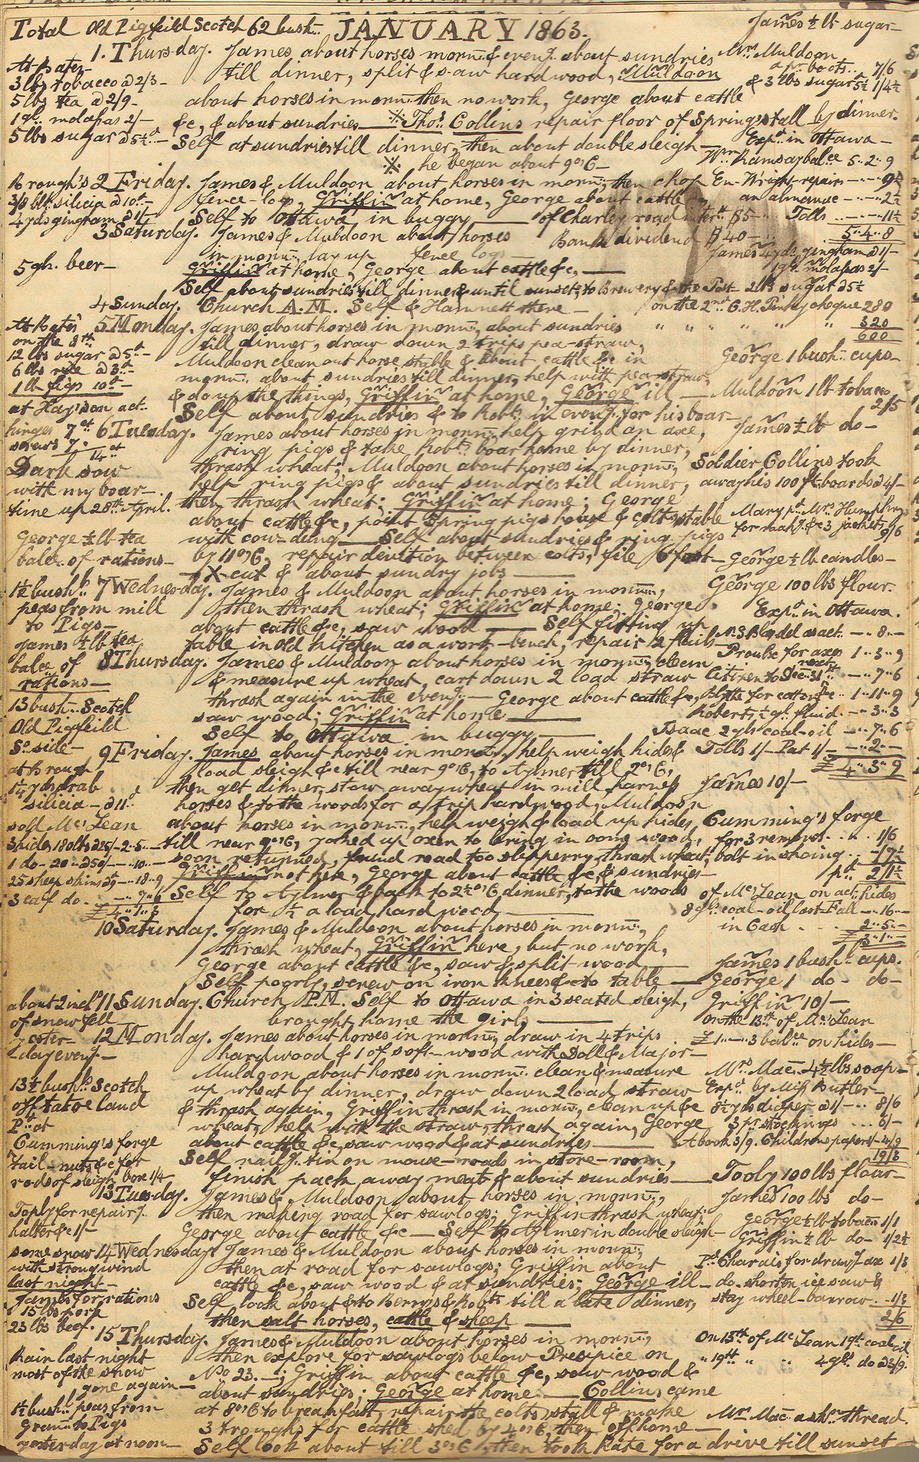 Total Old Pigfield Scotch 62 bush. JANUARY 1863. James ½ lb sugar
1. Thursday. James about horses morn. & even. about sundries Mr. Muldoon
At Bates till dinner, split & saw hard wood, Muldoon a pr. boots 7/6
3 lbs tobacco @ 2/3 about horses in morn. then no work, George about cattle & 3 lbs sugar 5½ 1/4½
5 lbs tea @ 2/9
1 gn. molasses 2/- &c, & about sundries ※ Thos. Collins repair floor of Spring stall by dinner.
5 lbs sugar @ 5½ Self at sundries till dinner, then about double sleigh Exps. in Ottawa
※ he began about 9 o'6 Wm. Ramsay balce 5 . 2 . 9
Brough's 2 Friday. James & Muldoon about horses in morn. then chop En. Wright repairs 9½
3/8 blk silicia @ 10d fence-logs, Griffin at home, George about cattle an almanac 2½
4 yds gingham @ 1/- Self to Ottawa in buggy of Charley road inter't $5 Tolls 11½
3 Saturday. James & Muldoon about horses Bank dividend $40 5 . 4 . 8
in morn. lay up fence logs James 4 yds gingham @ 1/-
5 gh. beer Griffin at home, George about cattle &c, 1 gn. molasses 2/-
Self about sundries till dinner & until sunset, to Brewery & the Post 2 lbs sugar @ 5½
4 Sunday. Church A.M. Self & Hamnett there on the 2nd G.H. Perry cheque 280
At Bates' 5 Monday. James about horses in morn. about sundries " " " " " 320
on the 8th till dinner, draw down 2 trips pea-straw, 600
12 lbs sugar @ 5d Muldoon clean out horse stable & about cattle &c in George 1 bush. cups
6 lbs rice @ 3d morn. about sundries till dinner, help with pea straw,
1 lb figs 10d & do up the things, Griffin at home, George ill Muldoon 1 lb tobacco
at Hay's on act. Self about sundries & to Robt. in eveng. for his boar 2/5
hinges 7d. 6 Tuesday. James about horses in morn. help grind an axe, James ½ lb do
screws 7. ring pigs & take Robt. boar home by dinner,
Dark sow thrash wheat; Muldoon about horses in morn, Soldier Collins took
with my boar help ring pigs & about sundries till dinner, away his 100 ft boards @ 4/-
time up 28th April. then thrash wheat; Griffin at home; George Mary pd. Mr. Humphry
about cattle &c, point Spring pigs house & colts stable for mak'g &c 3 jackets, 9/6
George ½ lb tea with cow-dung Self about sundries & ring pigs
balce of rations by 11 o'6, repair devilion between colts, file 6 foot George ½ lb candles
X-cut & about sundry jobs George 100 lbs flour
1½ bush. 7 Wednesday. James & Muldoon about horses in morn,
peas from mill then thrash wheat; Griffin at home; George Exps. in Ottawa
to Pigs about cattle &c, saw wood Self fitting up N.S. Blysdel as act. 8
James ½ lb tea table in old kitchen as a work-bench, repair 2 flails Proulx for axes 1 . 3 . 9
balce of 8 Thursday. James & Muldoon about horses in morn. clean
rations & measure up wheat, cart down 2 load straw Citizen to Dec. 31st 7 . 6
thrash again in the eveng. George about cattle &c, Blyth for cutting &c 1 . 11 . 9
13 bush. Scotch saw wood; Griffin at home Roberts, ½ gl. fluid 3 . 3
Old Pigfield Self to Ottawa in buggy Isaac 2 gls coal-oil 7 . 6
So. side 9 Friday. James about horses in morn, help weigh hides Tolls 1/- Post 1/- 2
at Brough load sleigh &c till near 9 o'6, to Aylmer till 2 o'6, £ 4 . 3 . 9
1¼ yds drab then get dinner, stow away wheat in mill, harness James 10/-
silicia @ 11d horses & to the woods for a trip hard wood, Muldoon
sold Mc.Lean about horses in morn, help weigh & load up hides, Cumming's forge
3 hides 180 lbs 25/- 2.5 till near 9 o'6, yoked up oxen to bring in oong wood, for 3 remov. shot 1/6
1 do. 20 @ 50/- 10 soon returned, found road too slipperry, thrash wheat, bolt in shoing 1/7½
25 sheep skins @ 18.9 Griffin not here, George about cattle &c, & sundries pd. 2/1½
3 calf do. 7/6 Self to Aylmer & back to 2½ o'6 dinner, to the woods of Mc.Lean on act. hides
£ 4 . 1 . 3 for ½ a load hard wood 8 gls coal-oil last Fall 16
10 Saturday. James & Muldoon about horses in morn, in Cash 2 . 5
thrash wheat, Griffin here, but no work, 3 . 1
George about cattle &c, saw & split wood James 1 bush. cups.
Self poorly, screw on iron knees &c to table George 1 do do
about 2 inch 11 Sunday. Church P.M. Self to Ottawa in 3 seated sleigh, Griffin 10/-
of snow fell brought home the girls, on the 13th of Mc.Lean
yester- 12 Monday. James about horses in morn, draw in 4 trips £ 1 . 3 balce on hides
day event hard wood & 1 of soft-wood with Doll & Major
Muldoon about horses in morn. clean & measure Mrs. Mac. 4½ lbs soap
13½ bush. Scotch up wheat by dinner, draw down 2 load straw Exps. by Miss Butler
off tatoe land & thrash again, Griffin thrash in morn, clean up &c 8½ yds diaper @ 1/- 8/6
Pd. at wheat, help with the straw, thrash again, George 3 prs stockings 6/-
Cumming's forge about cattle &c, saw wood & at sundries A book 3/9. Childrens papers 4/9
Tail-nuts &c for Self nailg. tin on mouse-roads in store-room, 19/3
rods of sleigh box 1/4 finish pack away meat & about sundries Tooly 100 lbs flour
13 Tuesday. James & Muldoon about horses in morn, James 100 lbs do
To ply for repair 7. then making road for sawlogs; Griffin thrash wheat;
halter &c 1/- George about cattle &c Self to Aylmer in double sleigh George ½ lb tobacco 1/1
some snow 14 Wednesday. James & Muldoon about horses in morn, Griffin ½ lb do 1/2½
with strong wind then at road for sawlogs; Griffin about Pd. Charais for draw'g axe 1/3
last night cattle &c, saw wood & at sundries; George ill do. shorten ice saw &
James for rations Self look about & to Berry's & Robt's till a late dinner, stay wheel-barrow 1/3
15 lbs pork then salt horses, cattle & sheep 2/6
23 lbs beef. 15 Thursday. James & Muldoon about horses in morn, On 15th of Mc.Lean 1 gl. coal oil
Rain last night then explore for sawlogs below Prespice on " 19th " " 4 gls. do @ 3/9.
most of the snow No. 23.; Griffin about cattle &c, saw wood &
gone again about sundries; George at home Collins came
1½ bush. peas from at 8 o'6 to breakfast, repair the colts stall & make Mrs. Mac a skn. thread.
Grann. to Pigs 3 troughs for cattle shed by 4 o'6, then off home
yesterday at noon Self look about till 3 o'6, then took Kate for a drive till sunset